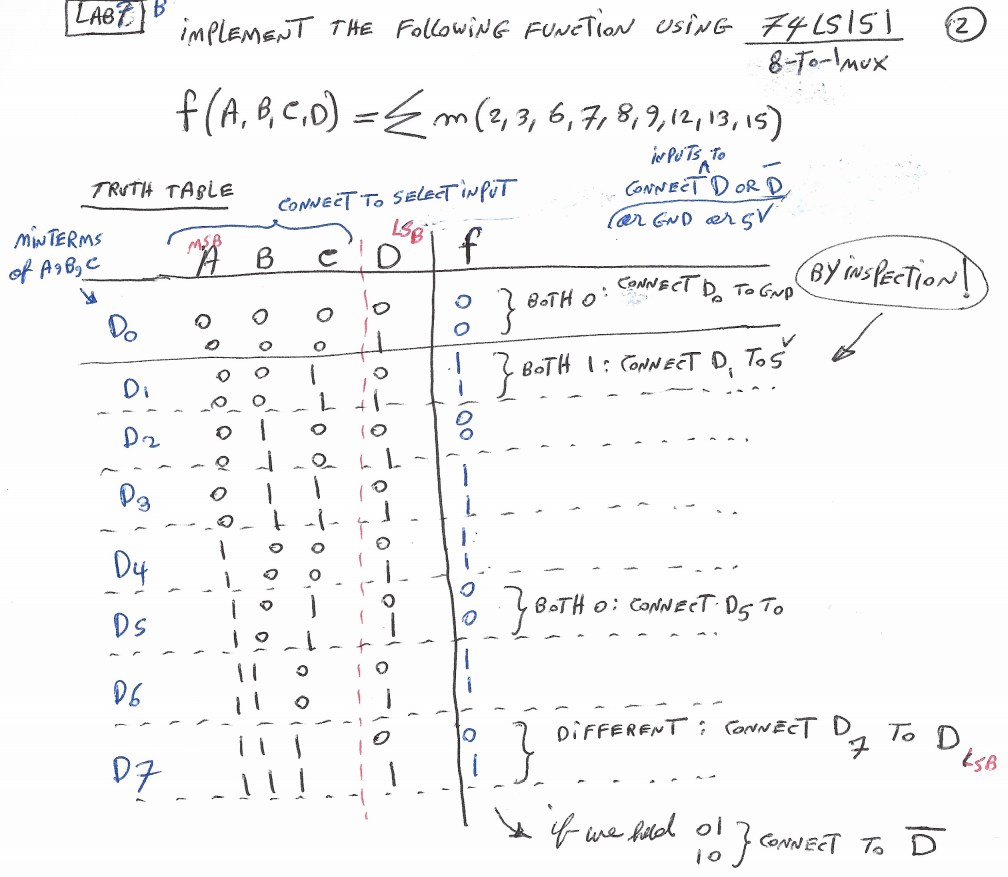 LAB7 B
IMPLEMENT THE FOLLOWING FUNCTION USING 74LS151 2
8-TO-1 MUX
f(A,B,C,D) = Σ m(2,3,6,7,8,9,12,13,15)
TRUTH TABLE
CONNECT TO SELECT INPUT
INPUTS TO
CONNECT D OR D̅
or GND or 5V
MINTERMS
of A,B,C
MSB LSB
A B C D f
BY INSPECTION!
D0 0 0 0 0 0 } BOTH 0: CONNECT D0 TO GND
0 0 0 1 0
D1 0 0 1 0 1 } BOTH 1: CONNECT D1 TO 5V
0 0 1 1 1
D2 0 1 0 0 0
0 1 0 1 0
D3 0 1 1 0 1
0 1 1 1 1
D4 1 0 0 0 1
1 0 0 1 1
D5 1 0 1 0 0 } BOTH 0: CONNECT D5 TO
1 0 1 1 0
D6 1 1 0 0 1
1 1 0 1 1
D7 1 1 1 0 0 } DIFFERENT: CONNECT D7 TO D LSB
1 1 1 1 1
if we had 01 } CONNECT TO D̅
10